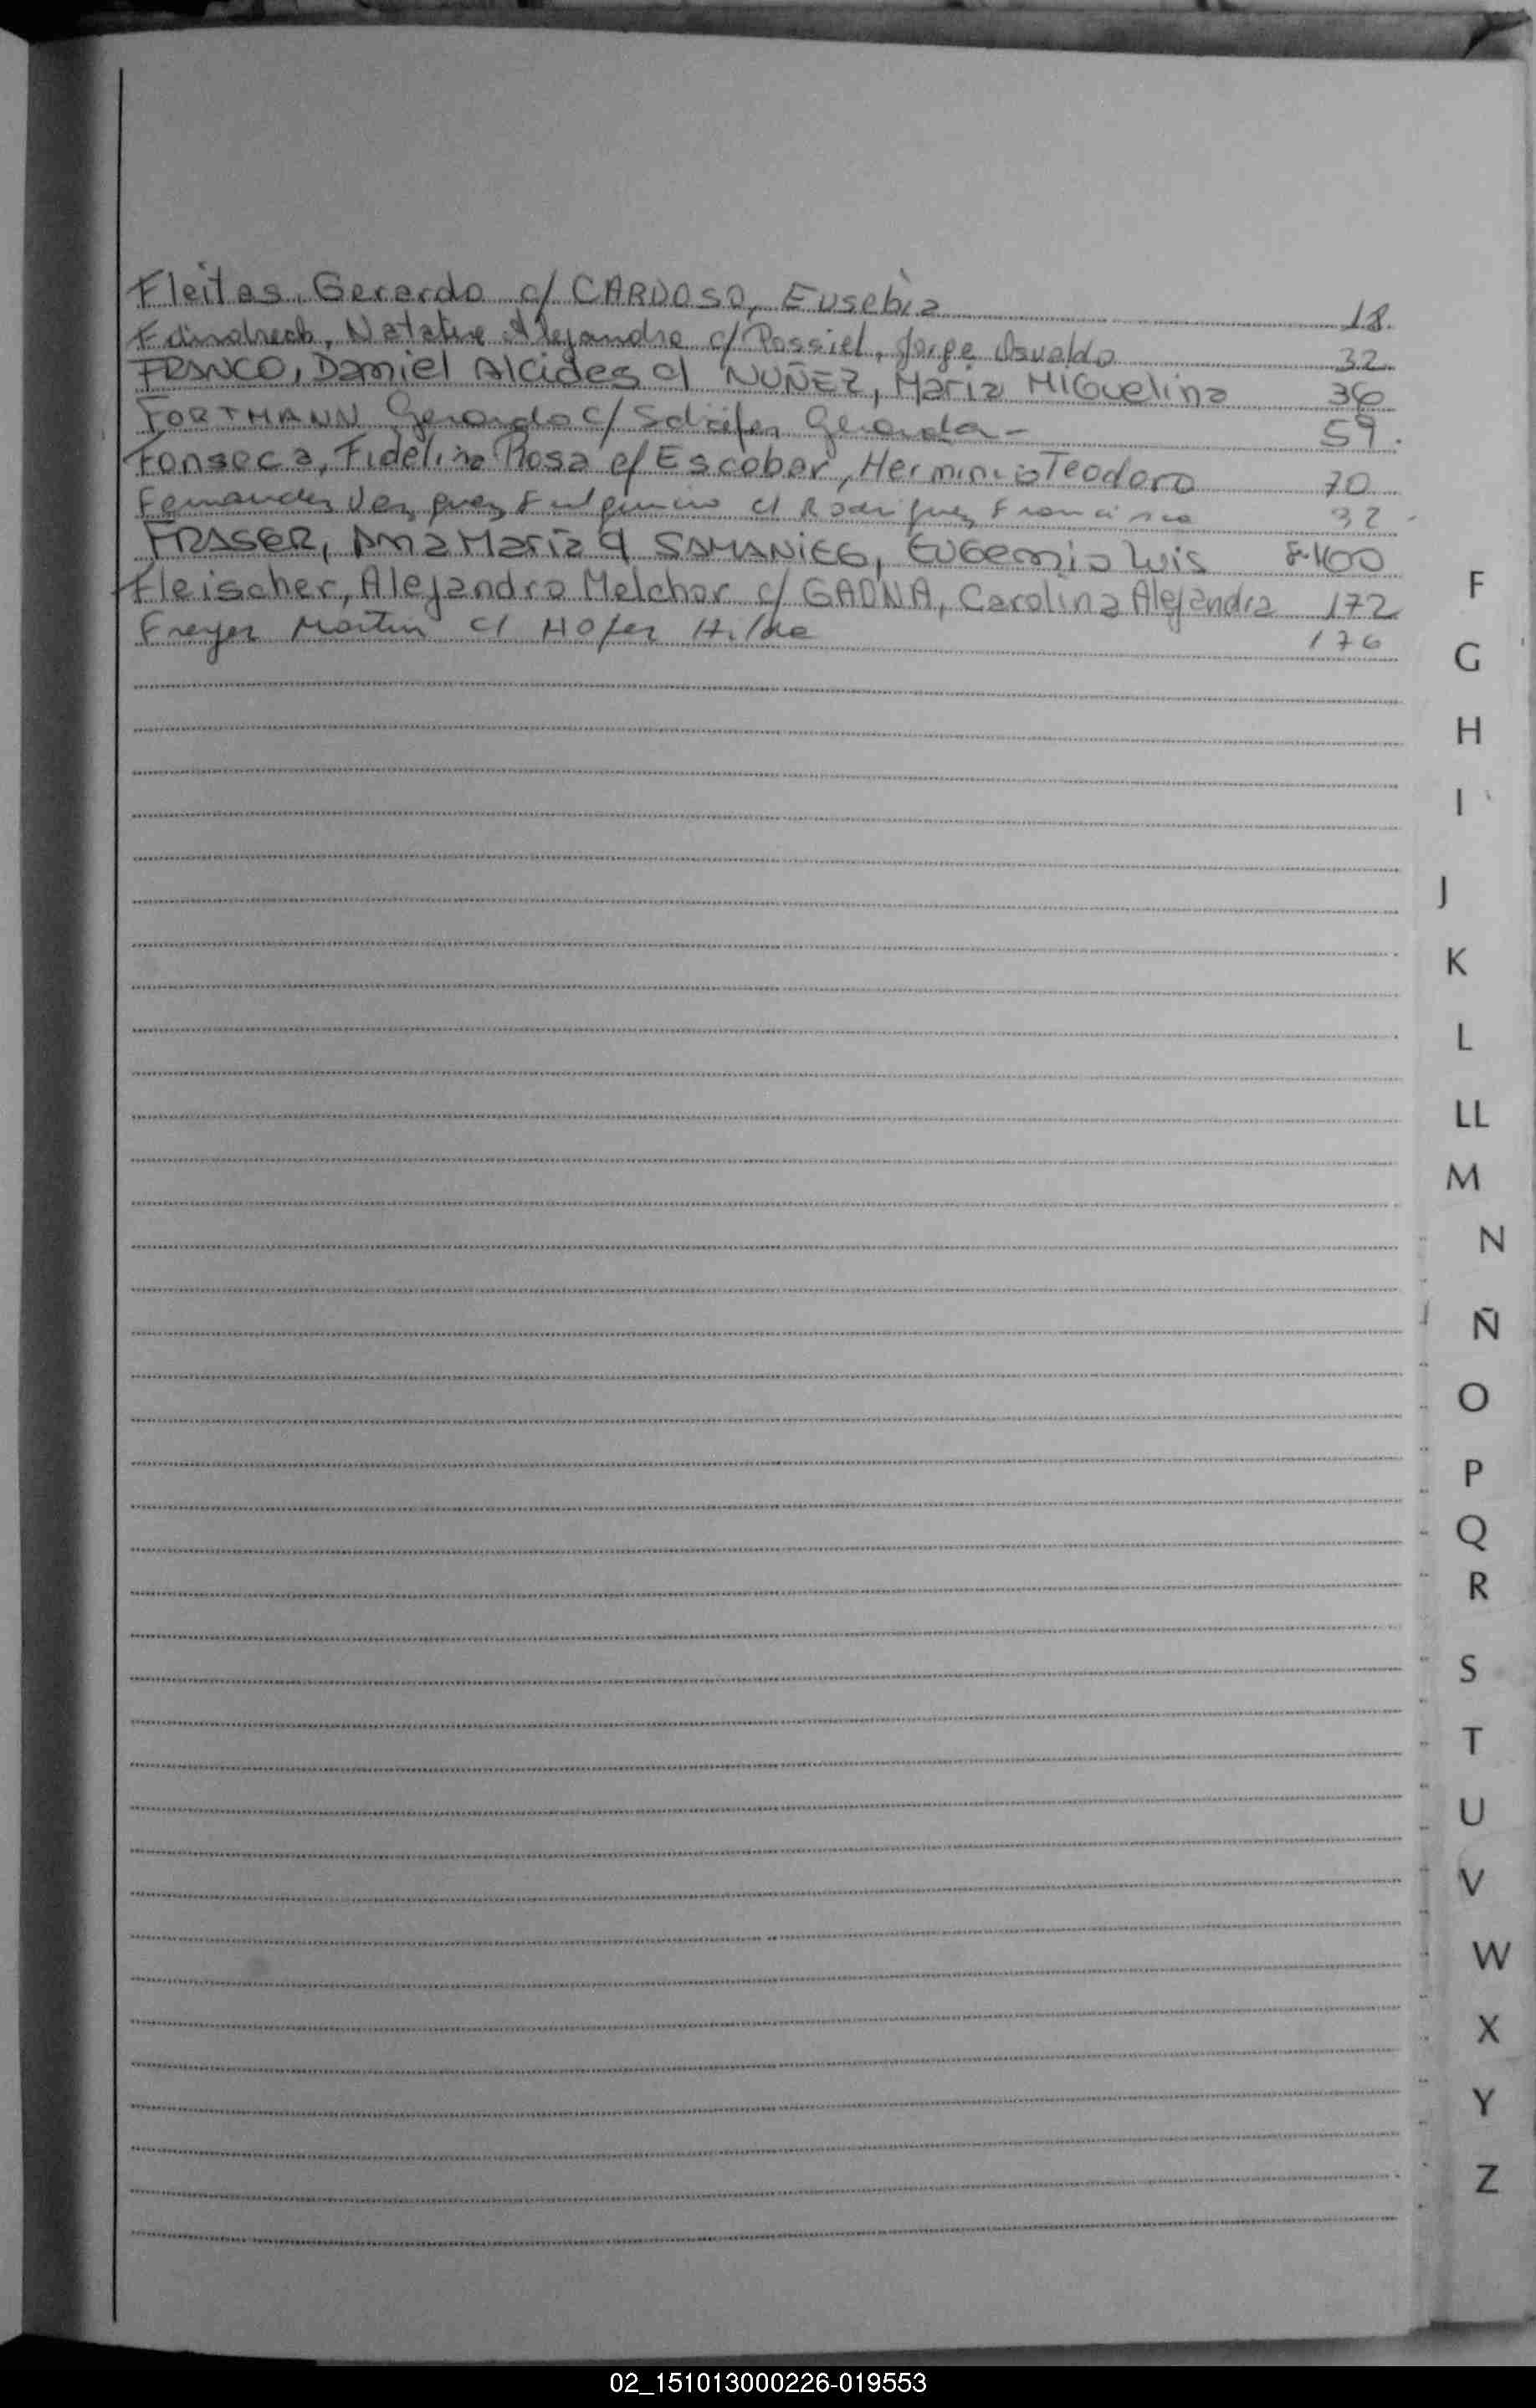 Fleitas, Gerardo c/ CARDOSO, Eusebia 18.
Natalia Alejandra c/ Possiel, Jorge Osvaldo 32
FRANCO, Daniel Alcides c/ NUÑEZ, Maria MIGuelina 36
FORTMANN Gerardo c/ Schäfer Gerarda - 59.
Fonseca, Fidelina Rosa c/ Escobar, Herminio Teodoro 70
Fernandez Vazquez Fulgencio c/ Rodriguez Francisca 32
FRASER, Ana Maria c/ SAMANIEG, EUGenio Luis 100
Fleischer, Alejandro Melchor c/ GAONA, Carolina Alejandra 172
Freyer Martin c/ Hofer Hilda 176
F
G
H
I
J
K
L
LL
M
N
Ñ
O
P
Q
R
S
T
U
V
W
X
Y
Z
02_151013000226-019553